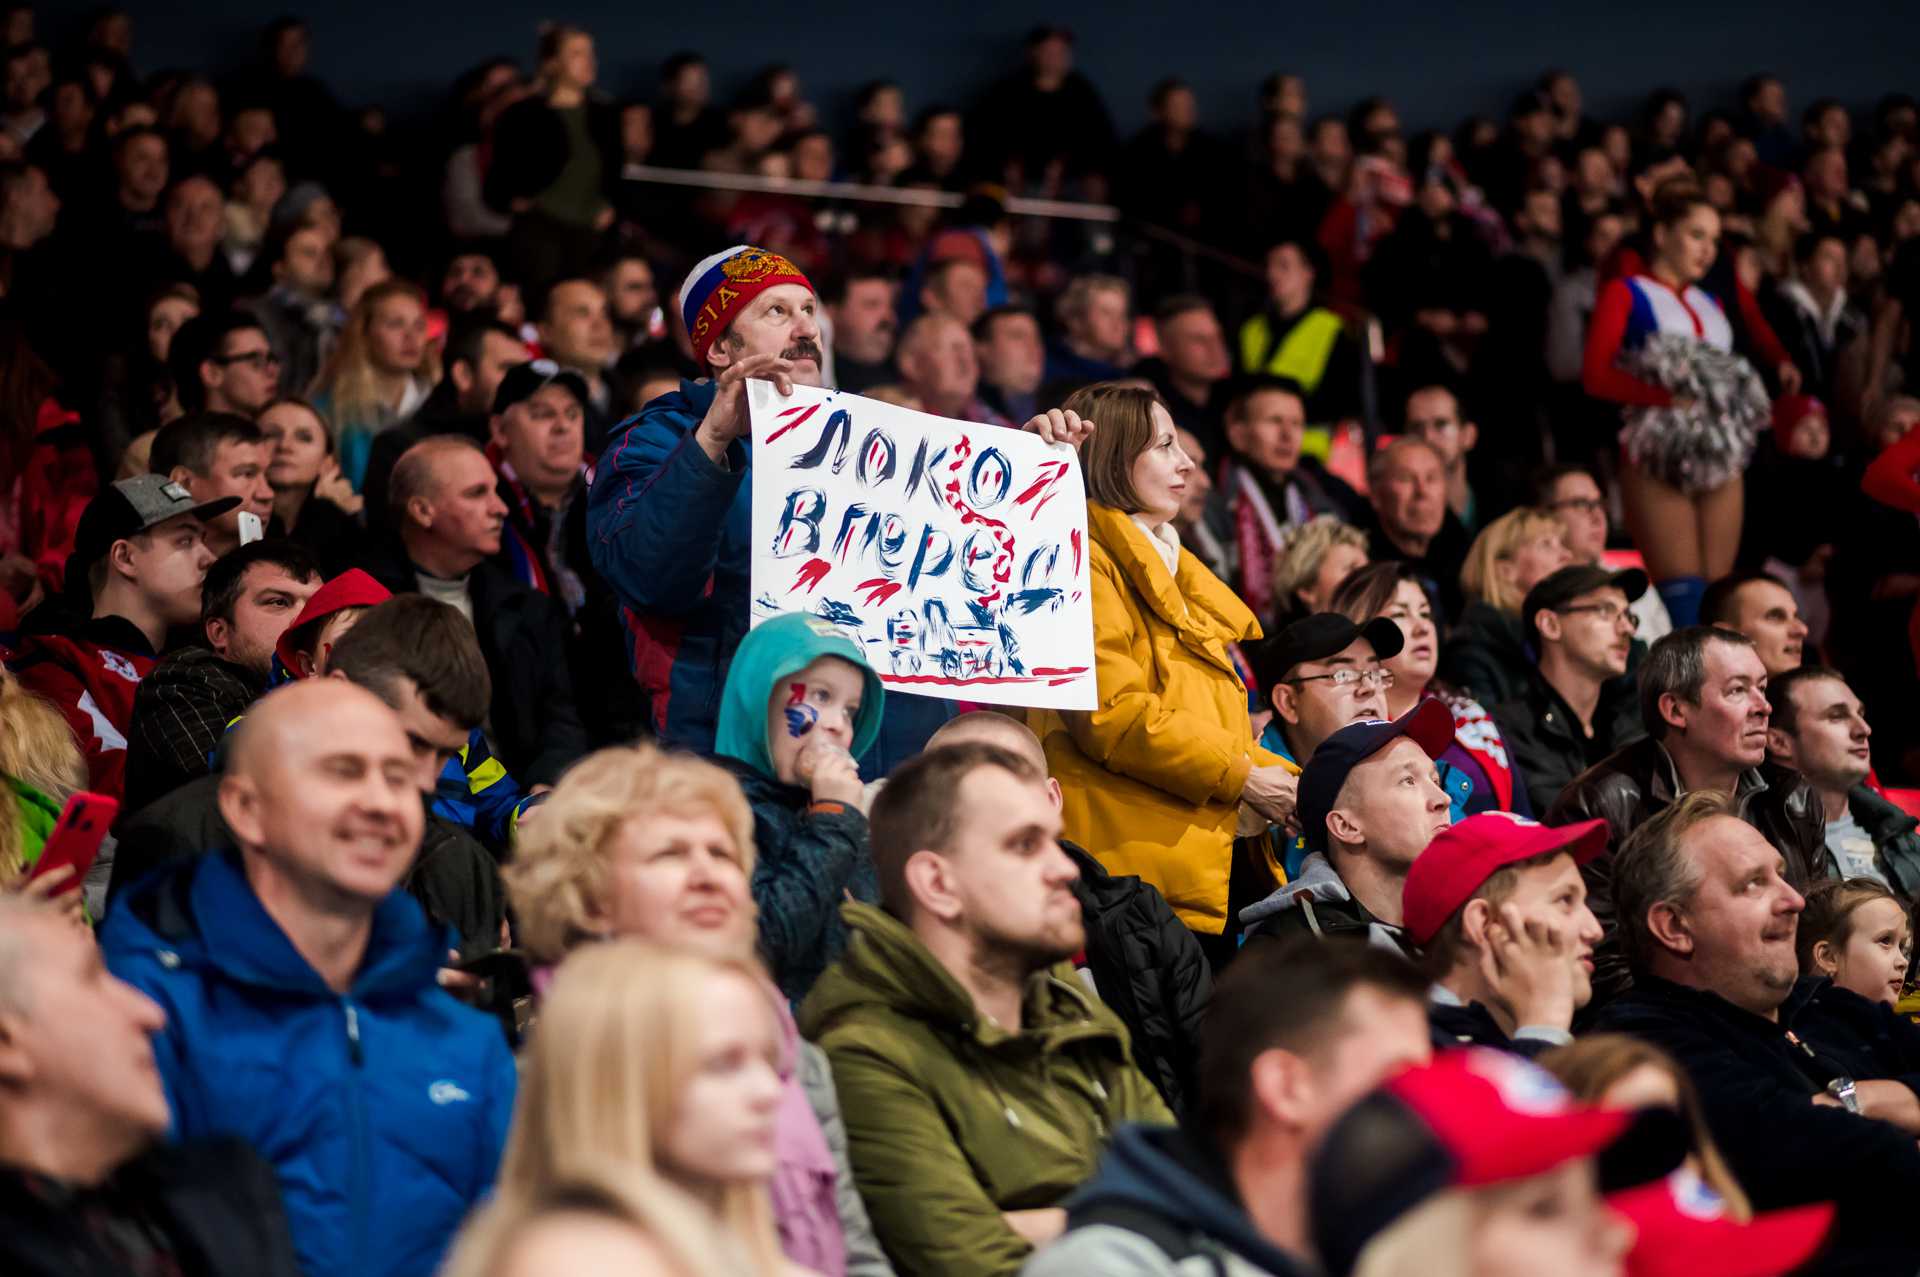 SIA
Локо
Вперед!